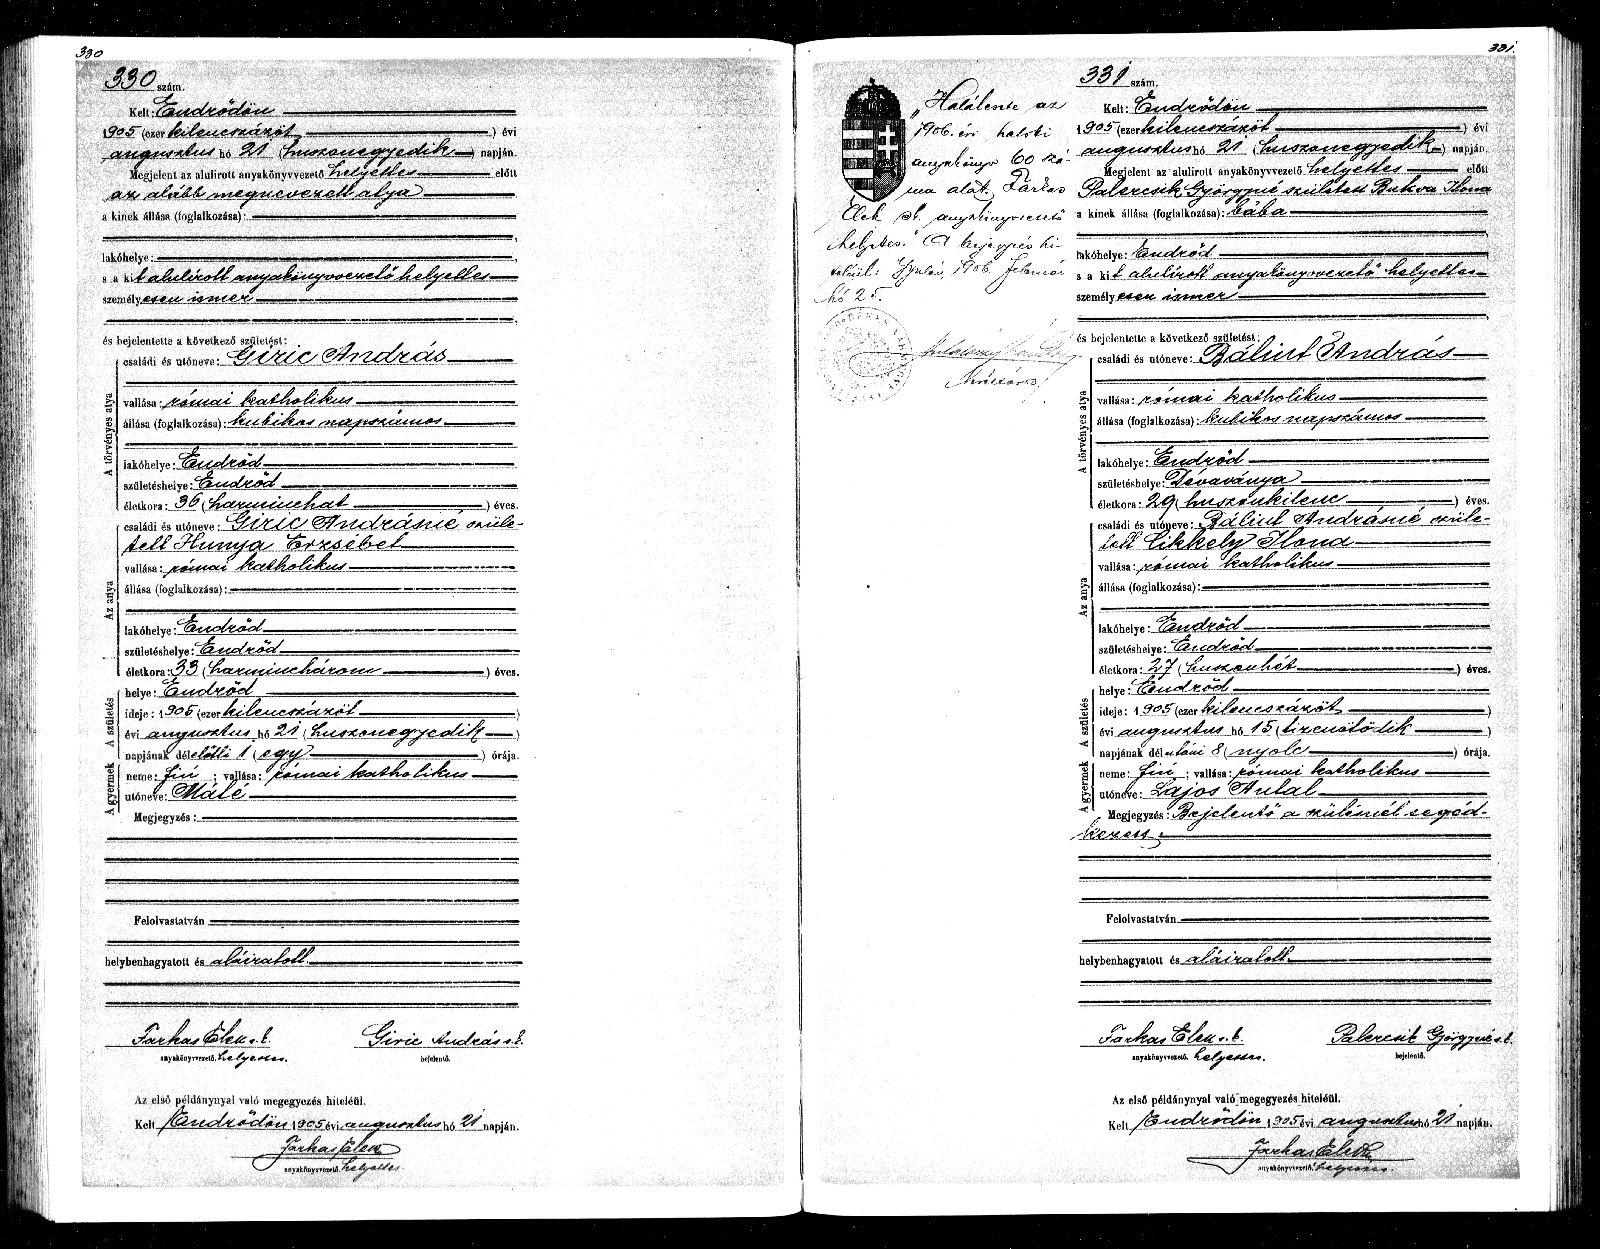 330
330 szám.
Kelt: Endrődön
1905 (ezer kilencszázöt ) évi
augusztus hó 21 (huszonegyedik ) napján.
Megjelent az alulirott anyakönyvvezető helyettes előtt
az alább megnevezett atya
a kinek állása (foglalkozása):
lakóhelye:
s a kit alulirott anyakönyvvezető helyettes
személyesen ismer
és bejelentette a következő születést:
A törvényes atya
családi és utóneve: Giric András
vallása: római katholikus
állása (foglalkozása): kubikos napszámos
lakóhelye: Endrőd
születéshelye: Endrőd
életkora: 36 (harminchat ) éves.
Az anya
családi és utóneve: Giric Andrásné szüle-
tett Hunya Erzsébet
vallása: római katholikus
állása (foglalkozása):
lakóhelye: Endrőd
születéshelye: Endrőd
életkora: 33 (harminchárom ) éves.
A születés
helye: Endrőd
ideje: 1905 (ezer kilencszázöt )
évi augusztus hó 21 (huszonegyedik )
napjának délelőtti 1 (egy ) órája.
A gyermek
neme: fiú ; vallása: római katholikus
utóneve: Máté
Megjegyzés:
Felolvastatván
helybenhagyatott és aláiratott.
Farkas Elek s.k. Giric András s.k.
anyakönyvvezető helyettes. bejelentő.
Az első példánynyal való megegyezés hiteléül.
Kelt Endrődön 1905 évi augusztus hó 21 napján.
Farkas Elek
anyakönyvvezető helyettes
331.
„Haláleste az
1906. évi halotti
anyakönyv 60 szá-
ma alatt. Farkas
Elek sk. anyakönyvvezető
helyettes." A bejegyzés hi-
teléül: Gyulán, 1906. Február
hó 25.
331 szám.
Kelt: Endrődön
1905 (ezer kilencszázöt ) évi
augusztus hó 21 (huszonegyedik ) napján.
Megjelent az alulirott anyakönyvvezető helyettes előtt
Palercsik Györgyné született Bukva Ilona
a kinek állása (foglalkozása): bába
lakóhelye: Endrőd
s a kit alulirott anyakönyvvezető helyettes
személyesen ismer
és bejelentette a következő születést:
A törvényes atya
családi és utóneve: Bálint András
vallása: római katholikus
állása (foglalkozása): kubikos napszámos
lakóhelye: Endrőd
születéshelye: Dévaványa
életkora: 29 (huszonkilenc ) éves.
Az anya
családi és utóneve: Bálint Andrásné szüle-
tett Cikkely Ilona
vallása: római katholikus
állása (foglalkozása):
lakóhelye: Endrőd
születéshelye: Endrőd
életkora: 27 (huszonhét ) éves.
A születés
helye: Endrőd
ideje: 1905 (ezer kilencszázöt )
évi augusztus hó 15 (tizenötödik )
napjának délutáni 8 (nyolc ) órája.
A gyermek
neme: fiú ; vallása: római katholikus
utóneve: Lajos Antal
Megjegyzés: Bejelentő a szülésnél segéd-
kezett.
Felolvastatván
helybenhagyatott és aláiratott.
Farkas Elek s.k. Palercsik Györgyné s.k.
anyakönyvvezető. helyettes. bejelentő.
Az első példánynyal való megegyezés hiteléül.
Kelt Endrődön 1905 évi augusztus hó 21 napján.
Farkas Elek
anyakönyvvezető. helyettes.